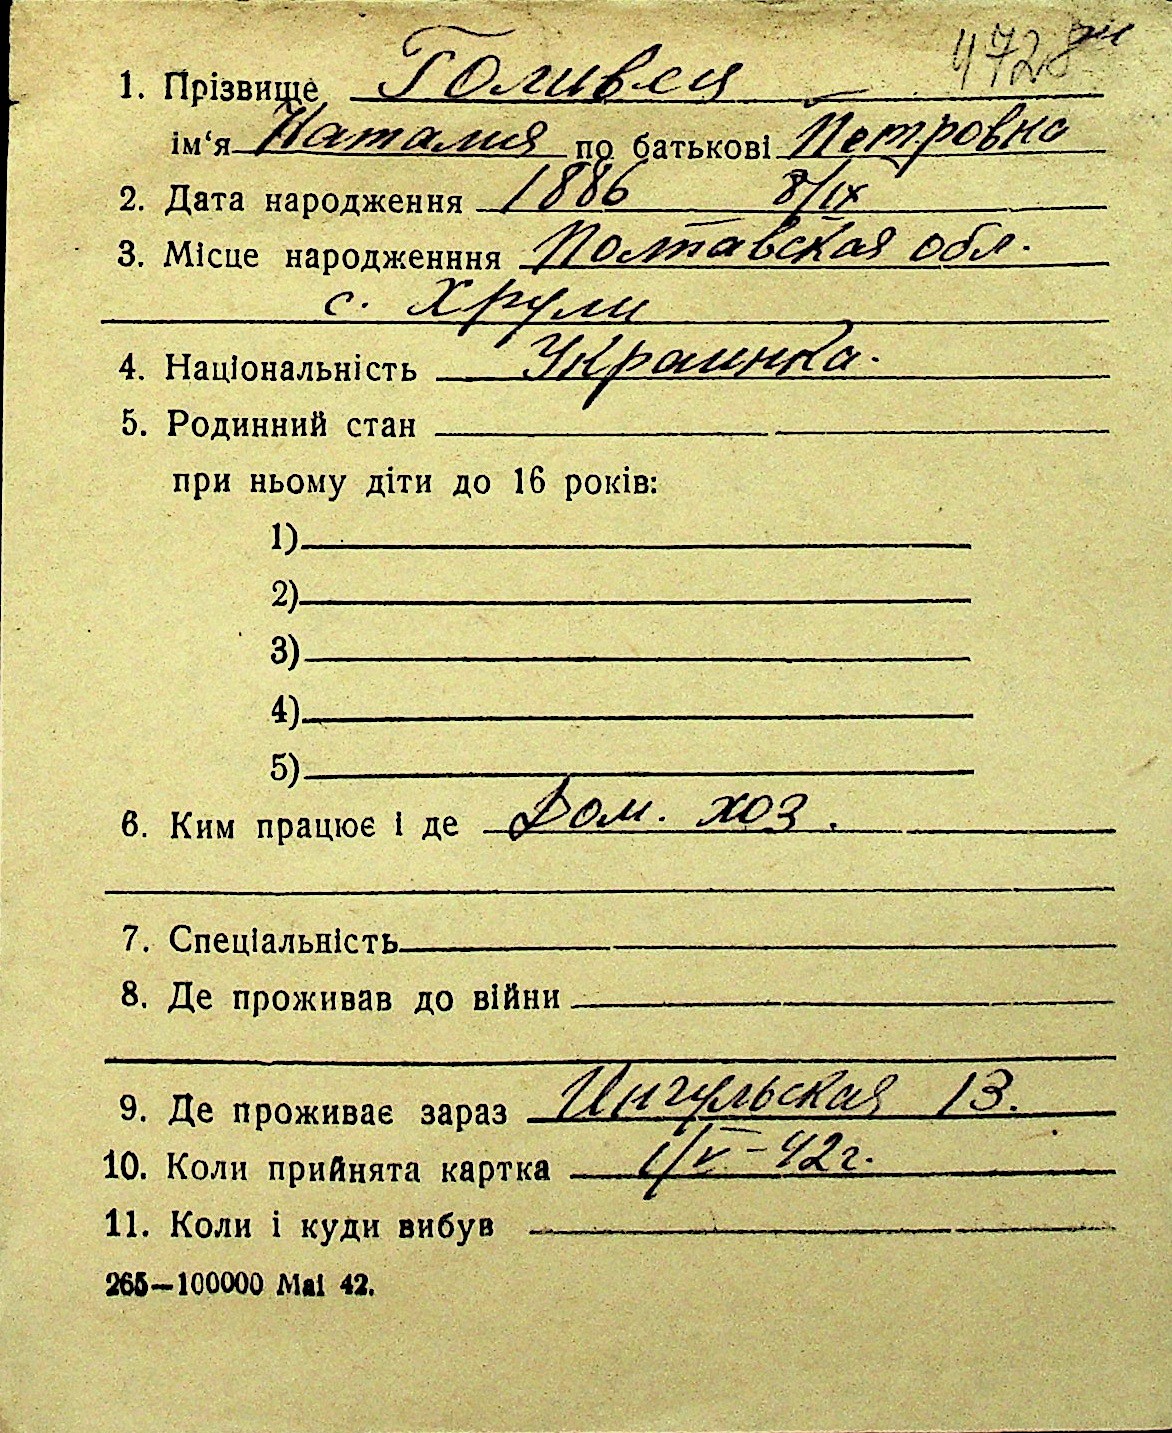 472
1. Прізвище Голився
ім‘я Наталия по батькові Петровна
2. Дата народження 1886 8/IX
3. Місце народженння Полтавская обл.
с. Хрули
4. Національність Украинка.
5. Родинний стан
при ньому діти до 16 років:
1)
2)
3)
4)
5)
6. Ким працює і де Дом. хоз.
7. Спеціальність
8. Де проживав до війни
9. Де проживає зараз Ингульская 13.
10. Коли прийнята картка 1/V-42г.
11. Коли і куди вибув
265—100000 Маі 42.